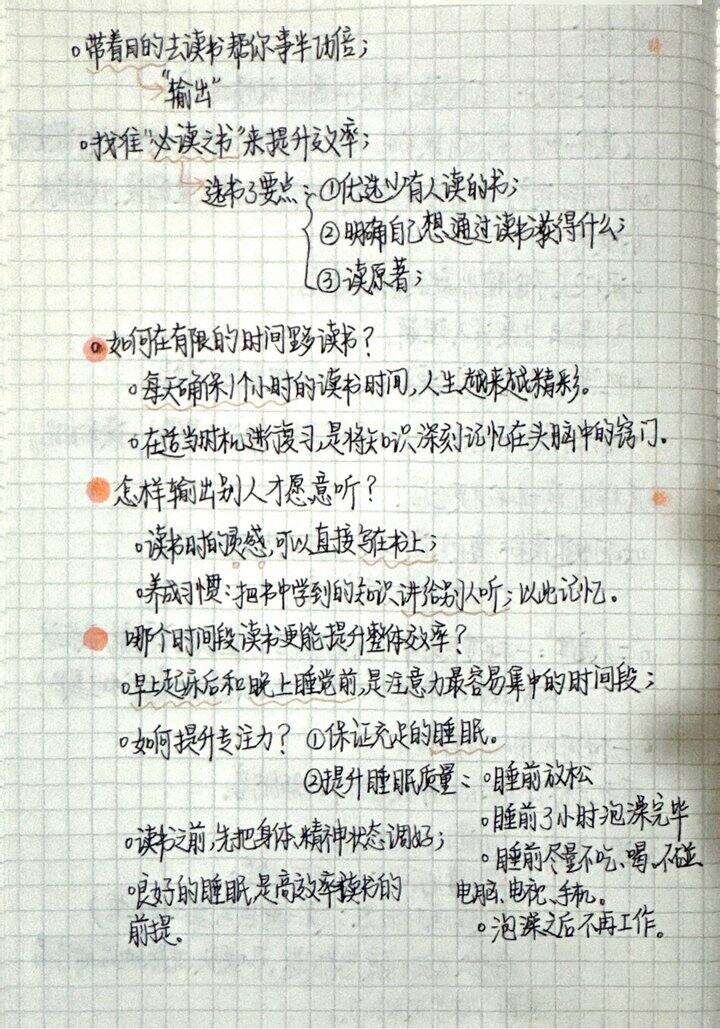 。带着目的去读书帮你事半功倍；
"输出"
。找准"必读之书"来提升效率；
选书3要点：①优选少有人读的书；
②明确自己想通过读书获得什么；
③读原著；
。如何在有限的时间里多读书？
。每天确保1个小时的读书时间，人生越来越精彩。
。在适当时机进行复习，是将知识深刻记忆在头脑中的窍门。
怎样输出别人才愿意听？
。读书时的灵感，可以直接写在书上；
。养成习惯：把书中学到的知识讲给别人听；以此记忆。
哪个时间段读书更能提升整体效率？
。早上起床后和晚上睡觉前，是注意力最容易集中的时间段；
。如何提升专注力？①保证充足的睡眠。
②提升睡眠质量：。睡前放松
。睡前3小时泡澡完毕
。睡前尽量不吃、喝、不碰
电脑、电视、手机。
。泡澡之后不再工作。
。读书之前，先把身体、精神状态调好；
。良好的睡眠是高效率读书的
前提。